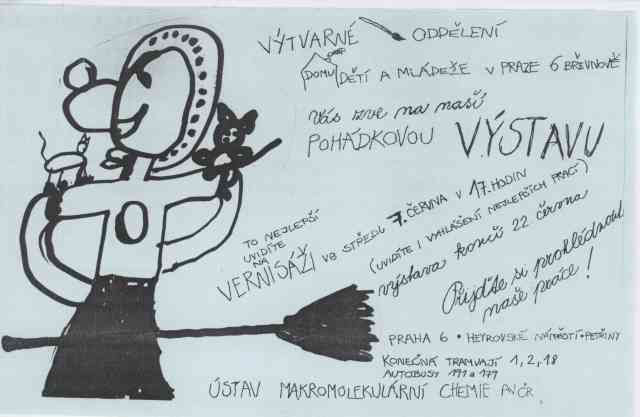 VÝTVARNÉ ODDĚLENÍ
DOMU DĚTÍ A MLÁDEŽE V PRAZE 6 BŘEVNOVĚ
Vás zve na naší
POHÁDKOVOU VÝSTAVU
TO NEJLEPŠÍ
UVIDÍTE
NA
VERNISÁŽI VE STŘEDU 7. ČERVNA V 17. HODIN
(UVIDÍTE I VYHLÁŠENÍ NEJLEPŠÍCH PRACÍ)
výstava končí 22 června
Přijďte si prohlédnout
naše práce!
PRAHA 6 • HEYROVSKÉ NÁMĚSTÍ • PETŘINY
KONEČNÁ TRAMVAJÍ 1, 2, 18
AUTOBUSY 191 a 179
ÚSTAV MAKROMOLEKULÁRNÍ CHEMIE AV ČR